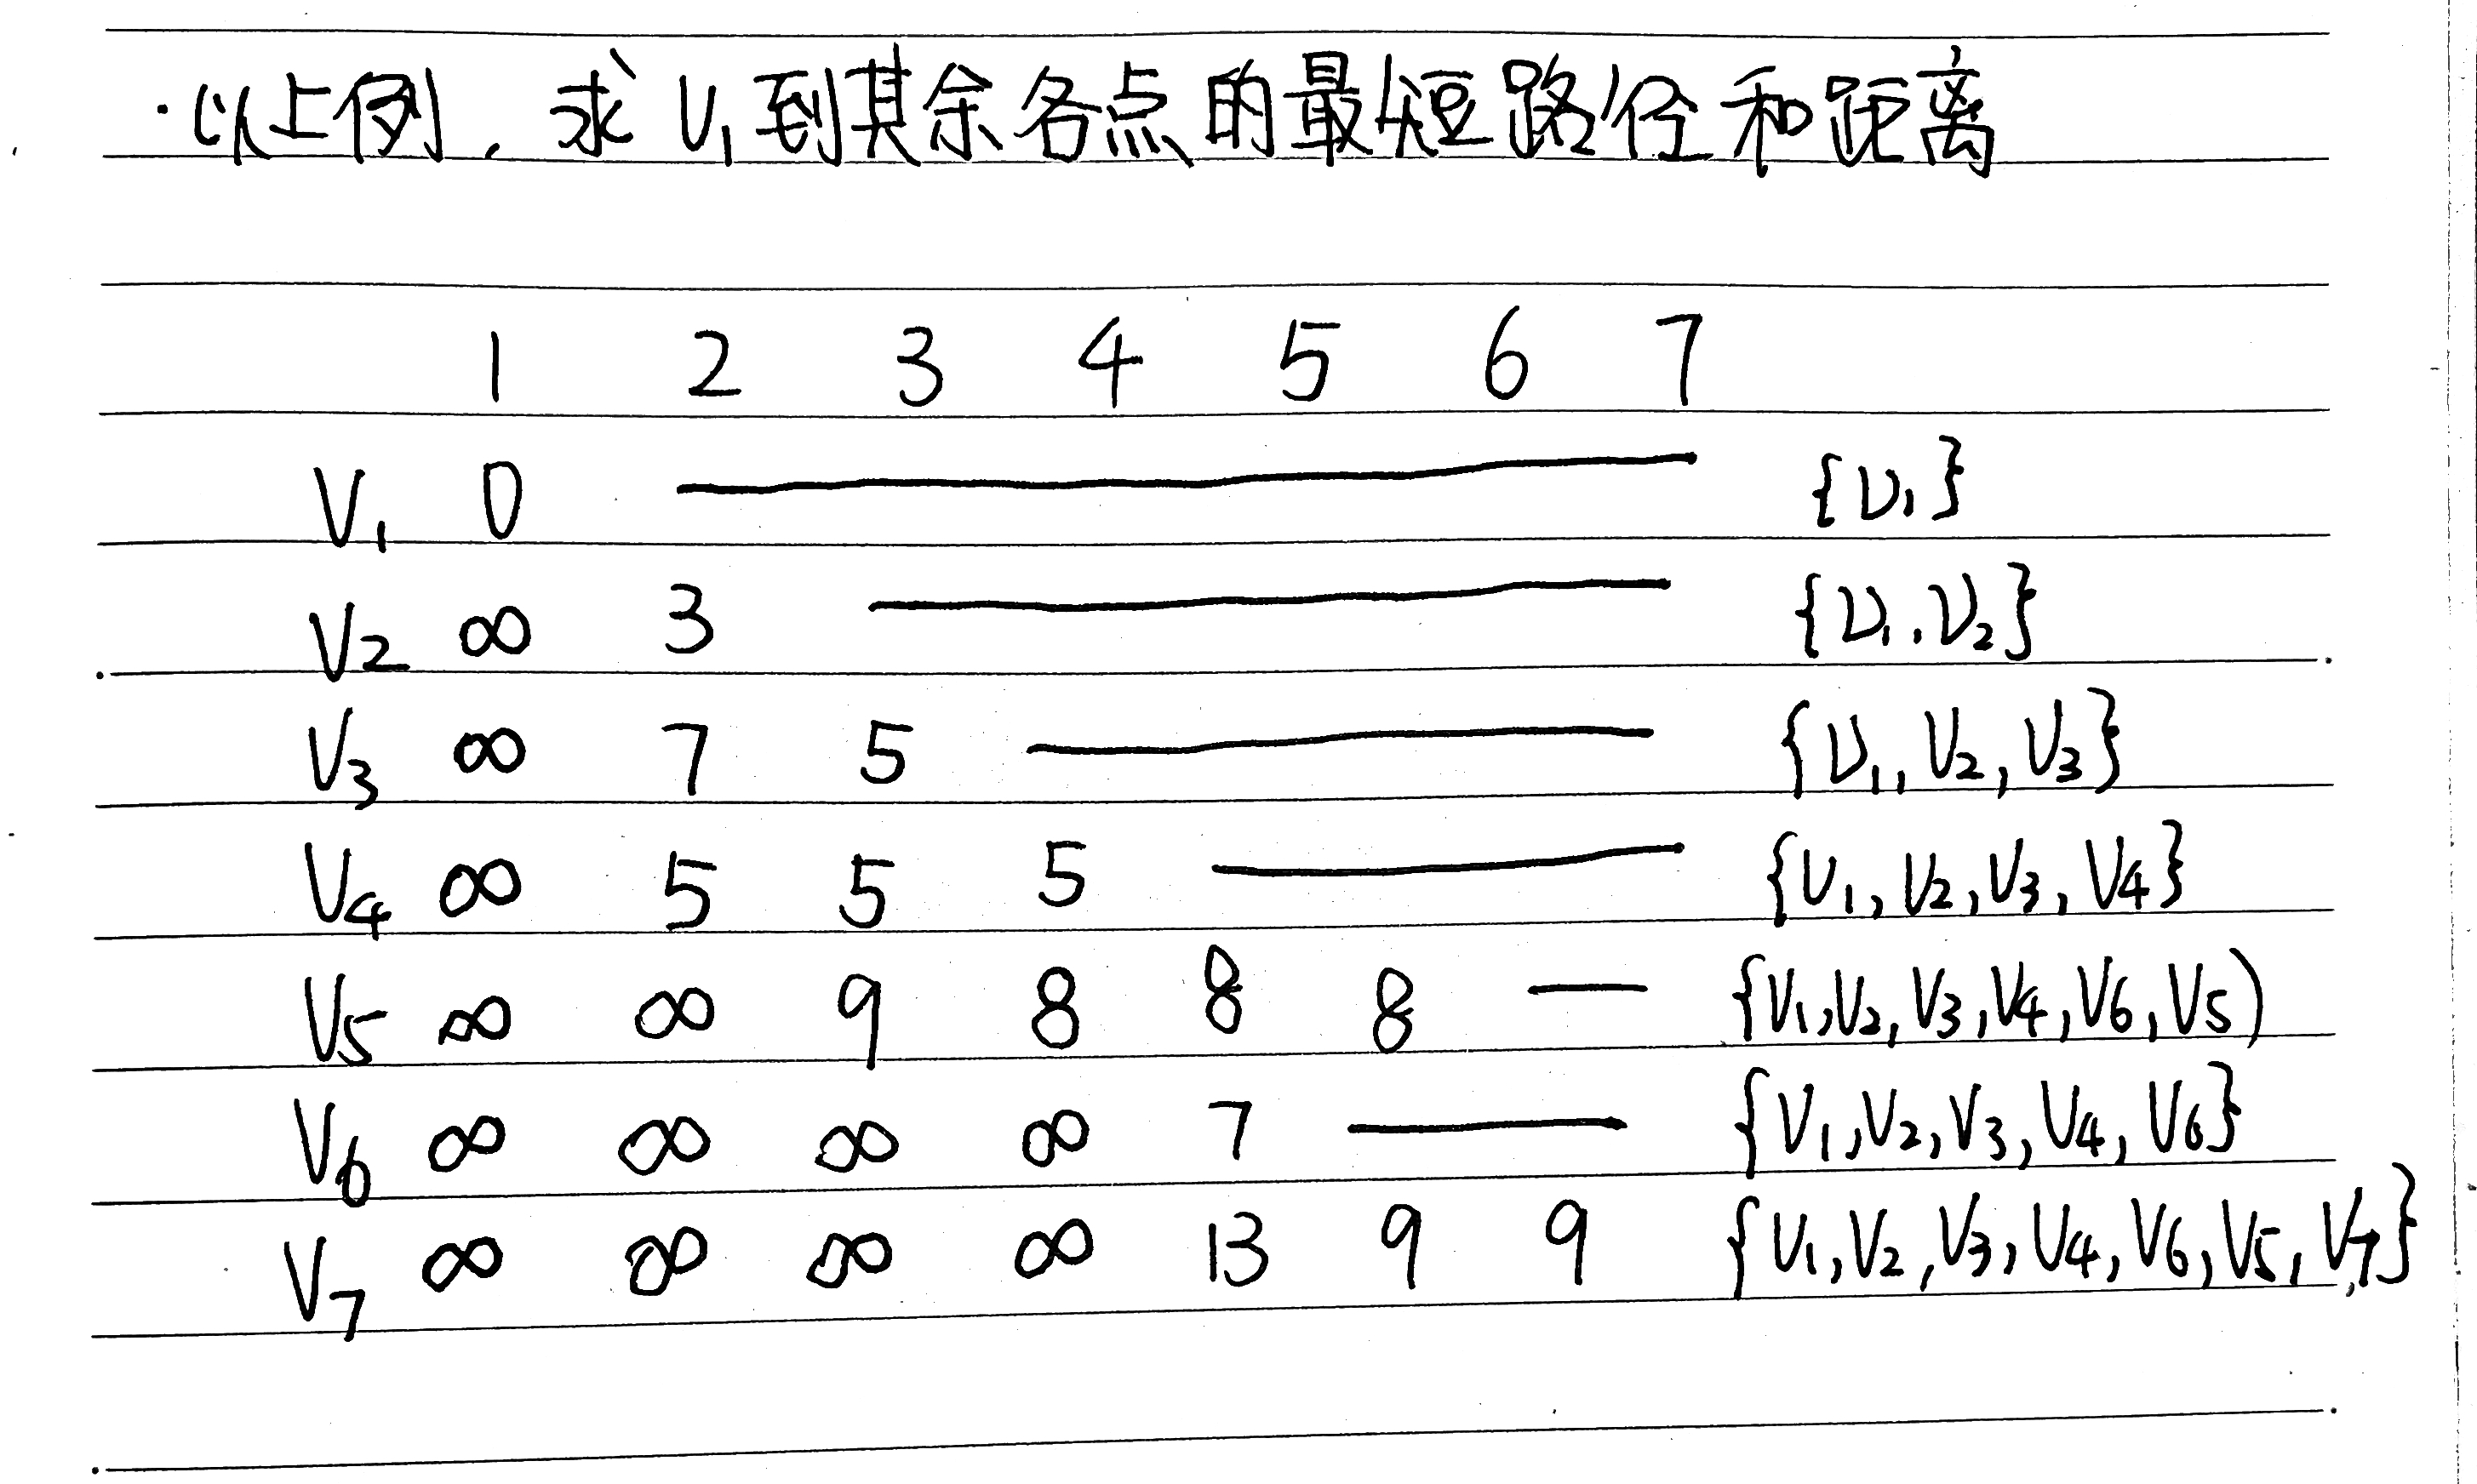 ·以上例,求V1到其余各点的最短路径和距离
1 2 3 4 5 6 7
V1 0 {V1}
V2 ∞ 3 {V1,V2}
V3 ∞ 7 5 {V1,V2,V3}
V4 ∞ 5 5 5 {V1,V2,V3,V4}
V5 ∞ ∞ 9 8 8 8 — {V1,V2,V3,V4,V6,V5)
V6 ∞ ∞ ∞ ∞ 7 — {V1,V2,V3,V4,V6}
V7 ∞ ∞ ∞ ∞ 13 9 9 {V1,V2,V3,V4,V6,V5,V7}